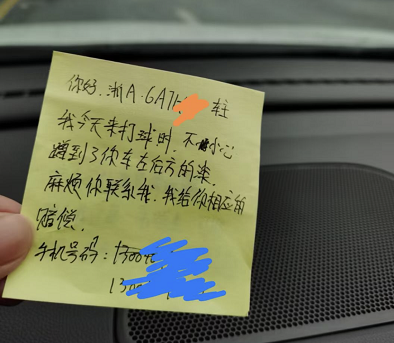 你好,浙A·GA7 车主
我今天来打球时,不小心
蹭到了你车左后方的漆,
麻烦你联系我,我给你相应的
赔偿.
手机号码:1500
130